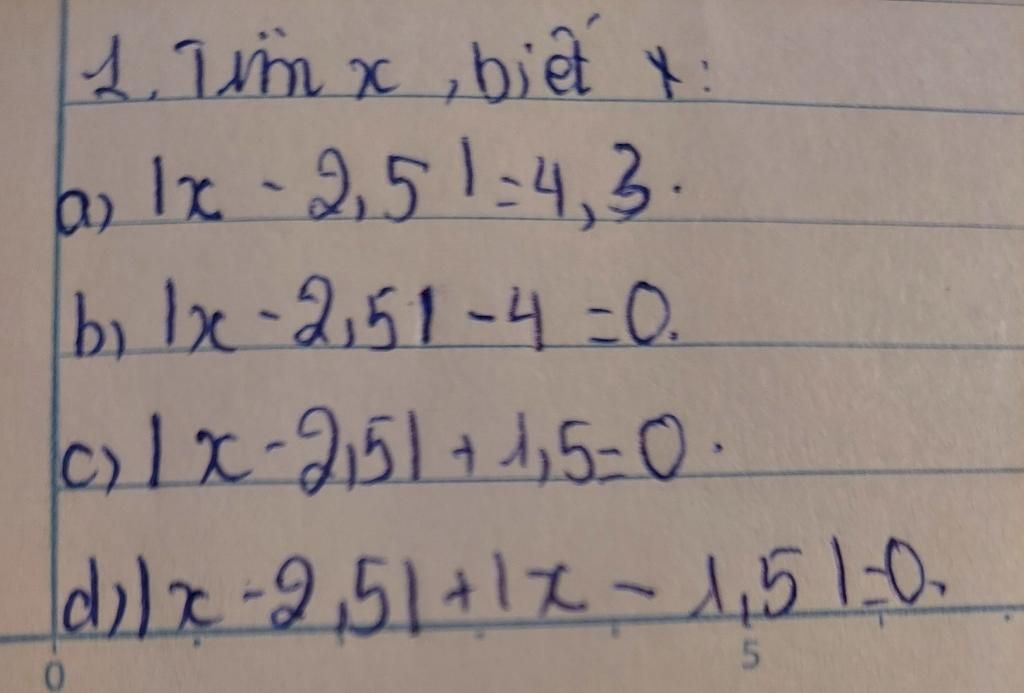 1. Tìm x, biết x:
a) |x - 2,5| = 4,3.
b) |x - 2,5| - 4 = 0.
c) |x - 2,5| + 1,5 = 0.
d) |x - 2,5| + |x - 1,5| = 0.
0 5